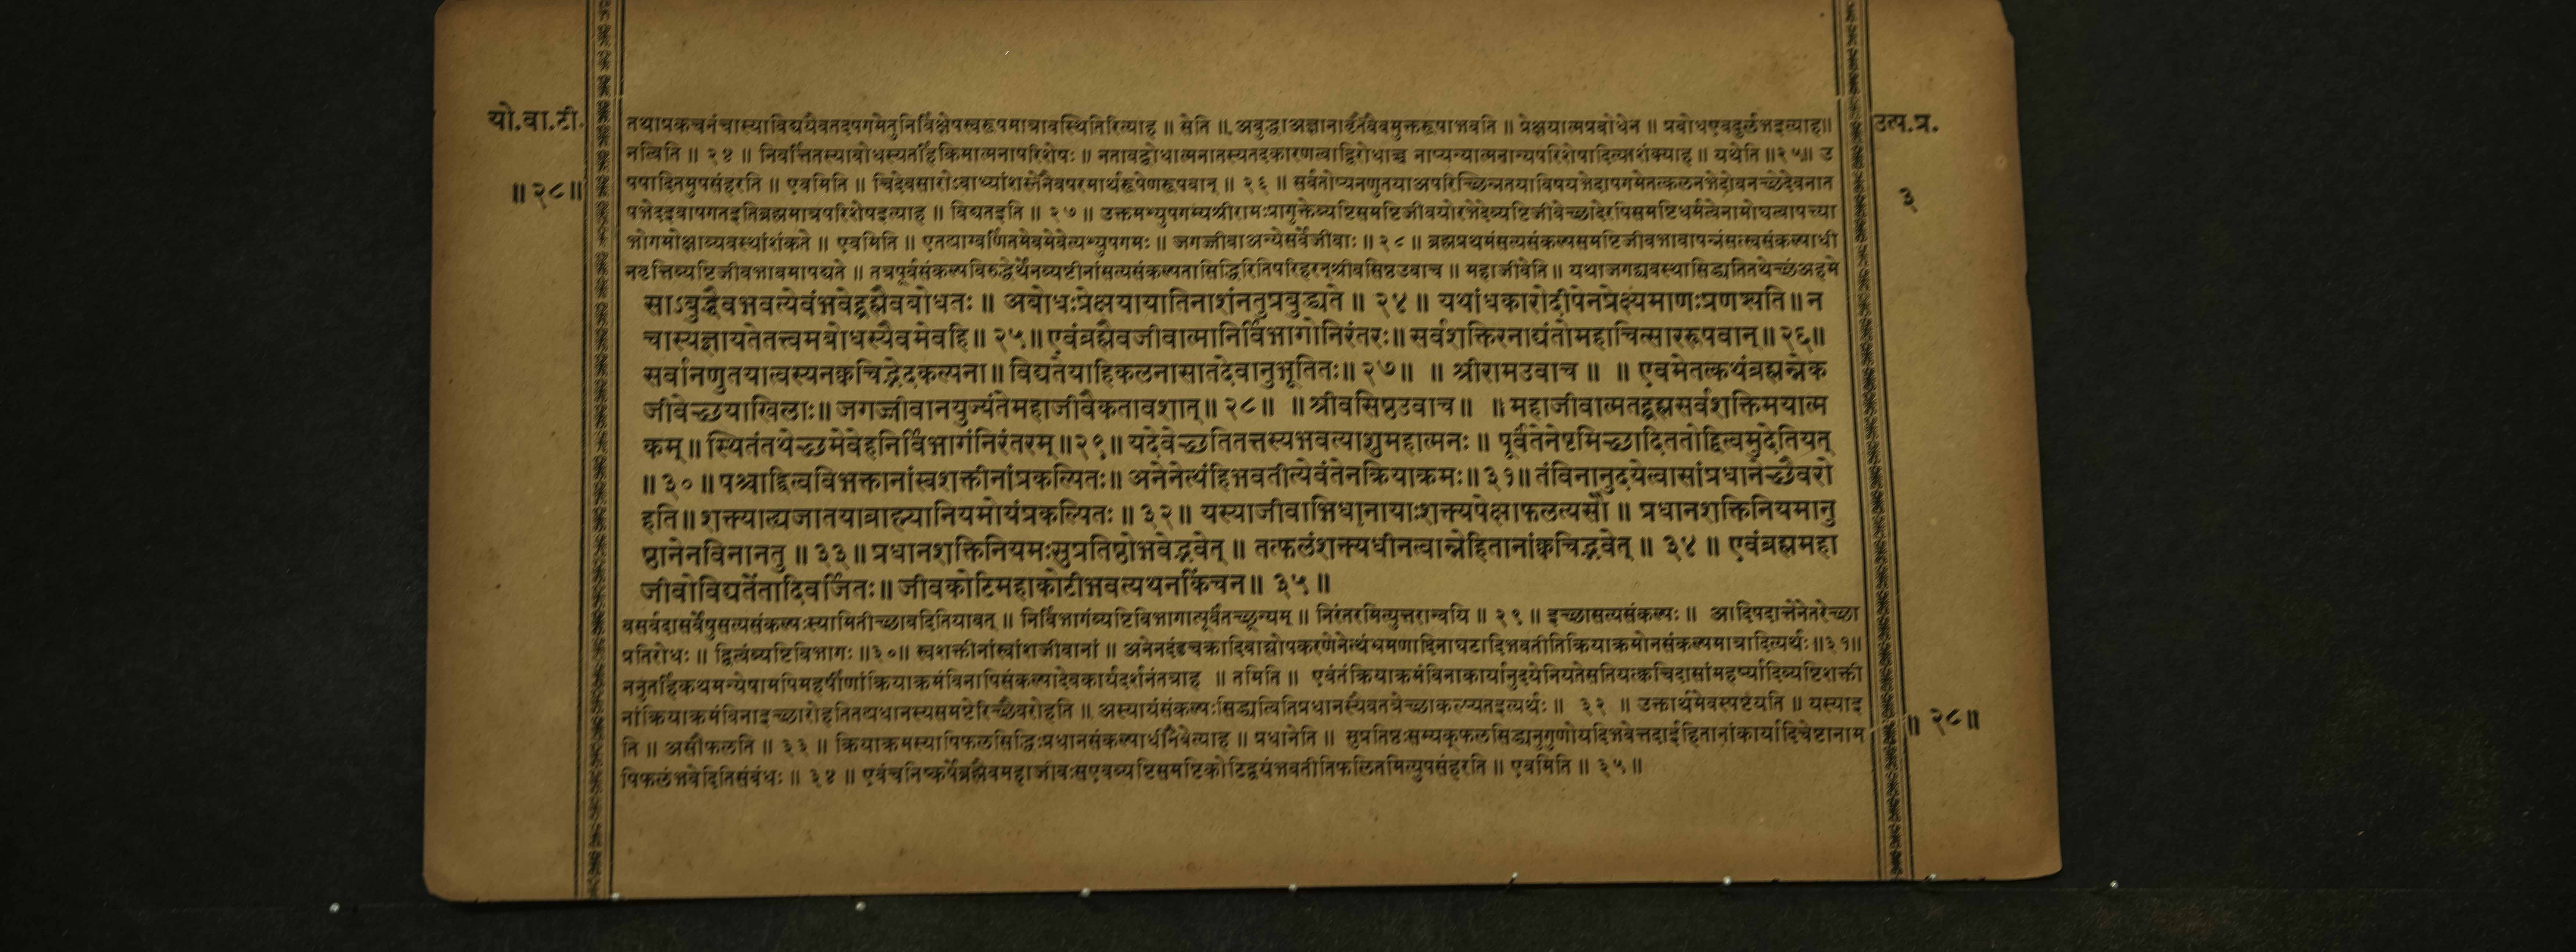 यो.वा.टी.
॥२८॥
उत्प.प्र.
३
तथाप्रकचनंचास्याविद्ययैवतदपगमेतुनिर्विक्षेपस्वरूपमात्रावस्थितिरित्याह ॥ सेति ॥ अबुद्धाअज्ञानावृतैवैवमुक्तरूपाभवति ॥ प्रेक्षयात्मप्रबोधेन ॥ प्रबोधएवदुर्लभइत्याह॥
नत्विति ॥ २४ ॥ निवर्त्तितस्याबोधस्यतर्हिकिमात्मनापरिशेषः ॥ नतावद्बोधात्मनातस्यतदकारणत्वाद्विरोधाच्च नाप्यन्यात्मनान्यपरिशेषादित्याशंक्याह ॥ यथेति ॥२५॥ उ
पपादितमुपसंहरति ॥ एवमिति ॥ चिदेवसारोऽबाध्यांशस्तेनैवपरमार्थरूपेणरूपवान् ॥ २६ ॥ सर्वतोप्यनणुतयाअपरिच्छिन्नतयाविषयभेदापगमेतत्कलनभेदोवनच्छेदेवनात
पभेदइवापगतइतिब्रह्ममात्रपरिशेषइत्याह ॥ विद्यतइति ॥ २७ ॥ उक्तमभ्युपगम्यश्रीरामःप्रागुक्तेव्यष्टिसमष्टिजीवयोरभेदेव्यष्टिजीवेच्छादेरपिसमष्टिधर्मत्वेनामोघत्वापत्त्या
भोगमोक्षाव्यवस्थांशंकते ॥ एवमिति ॥ एतत्प्राग्वर्णितमेवमेवेत्यभ्युपगमः ॥ जगज्जीवाअन्येसर्वेजीवाः ॥ २८ ॥ ब्रह्मप्रथमंसत्यसंकल्पसमष्टिजीवभावापन्नंसत्स्वसंकल्पाधी
नवृत्तिव्यष्टिजीवभावमापद्यते ॥ तत्रपूर्वसंकल्पविरुद्धेर्थेनव्यष्टीनांसत्यसंकल्पतासिद्धिरितिपरिहरन्श्रीवसिष्ठउवाच ॥ महाजीवेति ॥ यथाजगद्व्यवस्थासिद्ध्यतितथेच्छंअहमे
साऽबुद्धैवभवत्येवंभवेद्ब्रह्मैवबोधतः ॥ अबोधःप्रेक्षयायातिनाशंनतुप्रबुद्ध्यते ॥ २४ ॥ यथांधकारोदीपेनप्रेक्ष्यमाणःप्रणश्यति॥ न
चास्यज्ञायतेतत्त्वमबोधस्यैवमेवहि॥ २५॥एवंब्रह्मैवजीवात्मानिर्विभागोनिरंतरः॥ सर्वशक्तिरनाद्यंतोमहाचित्साररूपवान्॥२६॥
सर्वानणुतयात्वस्यनक्वचिद्भेदकल्पना॥ विद्यतेयाहिकलनासातदेवानुभूतितः॥ २७॥ ॥ श्रीरामउवाच ॥ ॥ एवमेतत्कथंब्रह्मन्नेक
जीवेच्छयाखिलाः॥ जगज्जीवानयुज्यंतेमहाजीवैकतावशात्॥ २८॥ ॥ श्रीवसिष्ठउवाच॥ ॥ महाजीवात्मतद्ब्रह्मसर्वशक्तिमयात्म
कम्॥ स्थितंतथेच्छमेवेहनिर्विभागंनिरंतरम्॥२९॥ यदेवेच्छतितत्तस्यभवत्याशुमहात्मनः॥ पूर्वंतेनेष्टमिच्छादिततोद्वित्वमुदेतियत्
॥ ३०॥ पश्चाद्द्वित्वविभक्तानांस्वशक्तीनांप्रकल्पितः॥ अनेनेत्थंहिभवतीत्येवंतेनक्रियाक्रमः॥३१॥ तंविनानुदयेत्वासांप्रधानेच्छैवरो
हति॥ शक्त्याद्यजातयाब्राह्म्यानियमोयंप्रकल्पितः॥ ३२॥ यस्याजीवाभिधानायाःशक्त्यपेक्षाफलत्यसौ॥ प्रधानशक्तिनियमानु
ष्ठानेनविनानतु ॥ ३३॥ प्रधानशक्तिनियमःसुप्रतिष्ठोभवेद्भवेत्॥ तत्फलंशक्त्यधीनत्वान्नेहितानांक्वचिद्भवेत्॥ ३४॥ एवंब्रह्ममहा
जीवोविद्यतेंतादिवर्जितः॥ जीवकोटिमहाकोटीभवत्यथनकिंचन॥ ३५॥
वसर्वदासर्वेषुसत्यसंकल्पःस्यामितीच्छावदितियावत् ॥ निर्विभागंव्यष्टिविभागात्पूर्वंतच्छून्यम् ॥ निरंतरमित्युत्तरान्वयि ॥ २९ ॥ इच्छासत्यसंकल्पः ॥ आदिपदात्तेनेतरेच्छा
प्रतिरोधः ॥ द्वित्वंव्यष्टिविभागः ॥३०॥ स्वशक्तीनांस्वांशजीवानां ॥ अनेनदंडचक्रादिबाह्योपकरणेनेत्थंभ्रमणादिनाघटादिभवतीतिक्रियाक्रमोनसंकल्पमात्रादित्यर्थः॥३१॥
ननुतर्हिकथमन्येषामपिमहर्षीणांक्रियाक्रमंविनापिसंकल्पादेवकार्यदर्शनंतत्राह ॥ तमिति ॥ एवंतंक्रियाक्रमंविनाकार्यानुदयेनियतेसतियत्क्वचिदासांमहर्ष्यादिव्यष्टिशक्ती
नांक्रियाक्रमंविनाइच्छारोहतितत्प्रधानस्यसमष्टेरिच्छैवरोहति ॥ अस्यायंसंकल्पःसिद्ध्यत्वितिप्रधानस्यैवतत्रेच्छाकल्प्यतइत्यर्थः ॥ ३२ ॥ उक्तार्थमेवस्पष्टयति ॥ यस्याइ
ति ॥ असौफलति ॥ ३३ ॥ क्रियाक्रमस्यापिफलसिद्धिःप्रधानसंकल्पाधीनैवेत्याह ॥ प्रधानेति ॥ सुप्रतिष्ठःसम्यक्फलसिद्ध्यनुगुणोयदिभवेत्तदाईहितानांकार्यादिचेष्टानाम
पिफलंभवेदितिसंबंधः ॥ ३४ ॥ एवंचनिष्कर्षेब्रह्मैवमहाजीवःसएवव्यष्टिसमष्टिकोटिद्वयंभवतीतिफलितमित्युपसंहरति ॥ एवमिति ॥ ३५॥
॥ २८॥